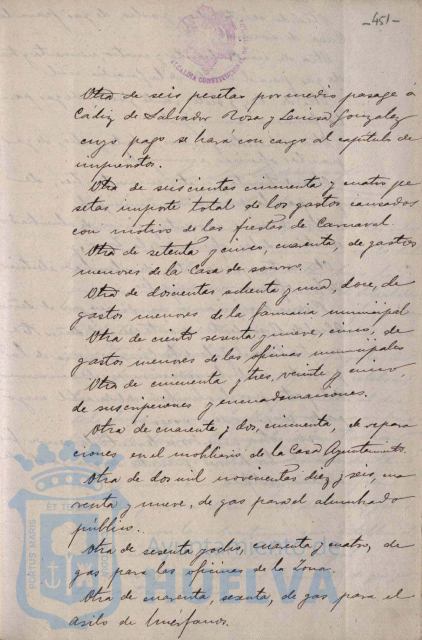 -451-
ALCALDIA CONSTITUCIONAL
Otra de seis pesetas por medio pasage á
Cádiz de Salvador Rosa y Luisa Gonzalez
cuyo pago se hará con cargo al capítulo de
imprevistos.
Otra de seiscientas cincuenta y cuatro pe
setas importe total de los gastos causados
con motivo de las fiestas de Carnaval.
Otra de setenta y cinco, cuarenta, de gastos
menores de la Casa de socorro.
Otra de doscientas ochenta y una, doce, de
gastos menores de la farmacia municipal
Otra de ciento sesenta y nueve, cinco, de
gastos menores de las oficinas municipales
Otra de cincuenta y tres, veinte y cinco,
de suscripciones y encuadernaciones.
Otra de cuarenta y dos, cincuenta, de repara
ciones en el mobiliario de la Casa Ayuntamiento.
Otra de dos mil novecientas diez y seis, no
venta y nueve, de gas para el alumbrado
público.
Otra de sesenta y ocho, cuarenta y cuatro, de
gas para las oficinas de la Zona.
Otra de cuarenta, sesenta, de gas para el
asilo de huerfanos.
PORTUS MARIS ET TERRÆ CUSTODIA
Ayuntamiento de
HUELVA